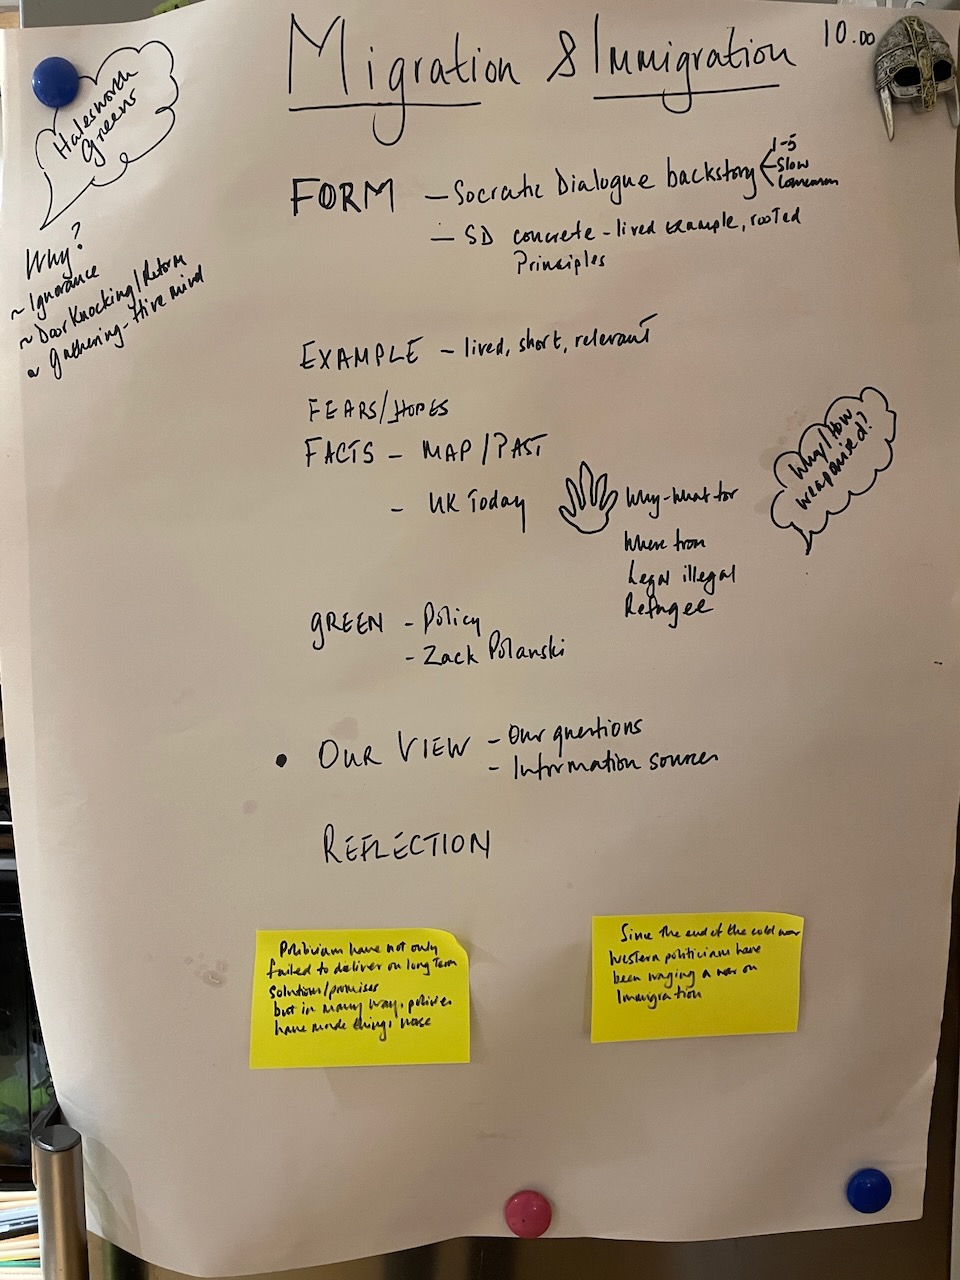 Migration & Immigration
10.00
Halesworth
Greens
Why?
~ Ignorance
~ Door Knocking/Reform
~ Gathering - Hive mind
FORM - Socratic Dialogue backstory
1-5
Slow
Consensus
- SD concrete - lived example, rooted
Principles
EXAMPLE - lived, short, relevant
FEARS/HOPES
FACTS - MAP/PAST
- UK Today
Why - What for
Where from
Legal illegal
Refugee
Why/How
weaponised?
GREEN - Policy
- Zack Polanski
• OUR VIEW - Our questions
- Information sources
REFLECTION
Politicians have not only
failed to deliver on long term
solutions/promises
but in many ways, policies
have made things worse
Since the end of the cold war
Western politicians have
been waging a war on
Immigration